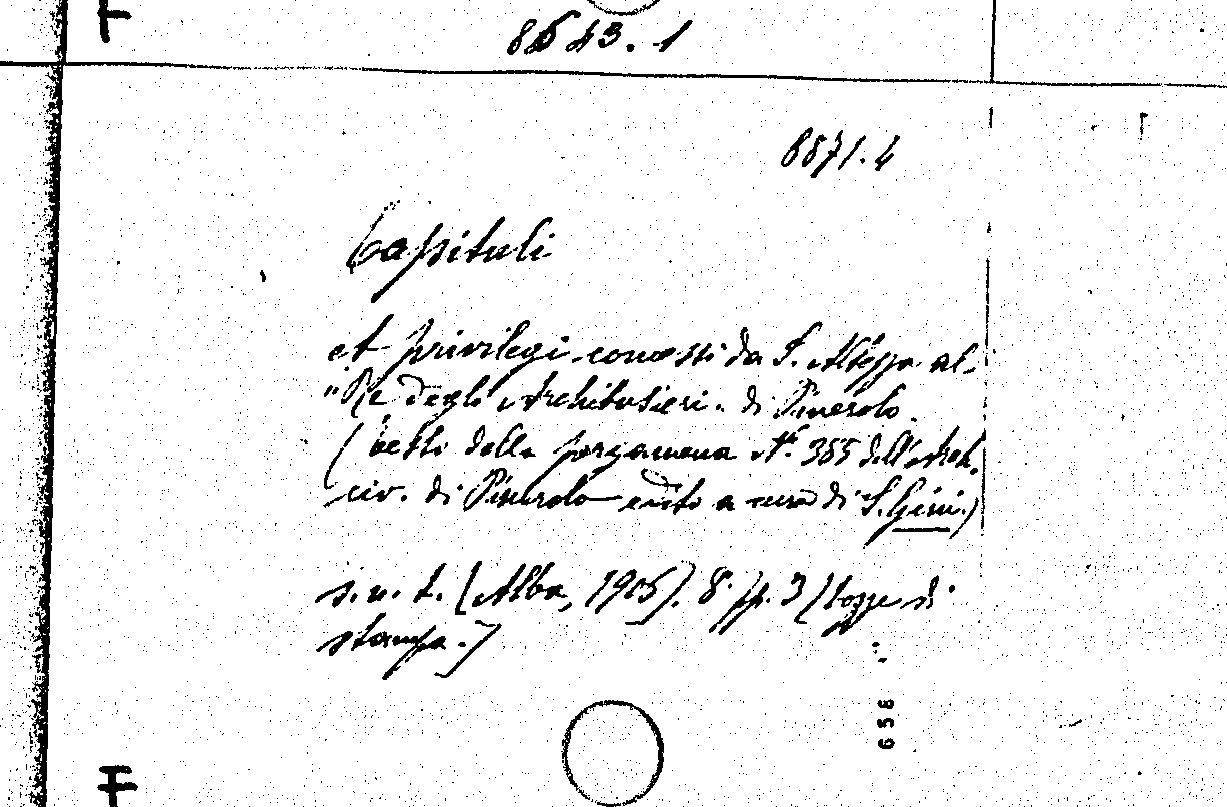 8643.1
8871.4
Capituli
et privilegi concessi da S. Altezza al
"Re degli Archibusieri" di Pinerolo.
(testo della pergamena N.° 355 dell'Arch.
civ. di Pinerolo edito a cura di S. Gini.)
s. n. t. [Alba, 1905]. 8° pp. 3 [bozze di
stampa.]
658